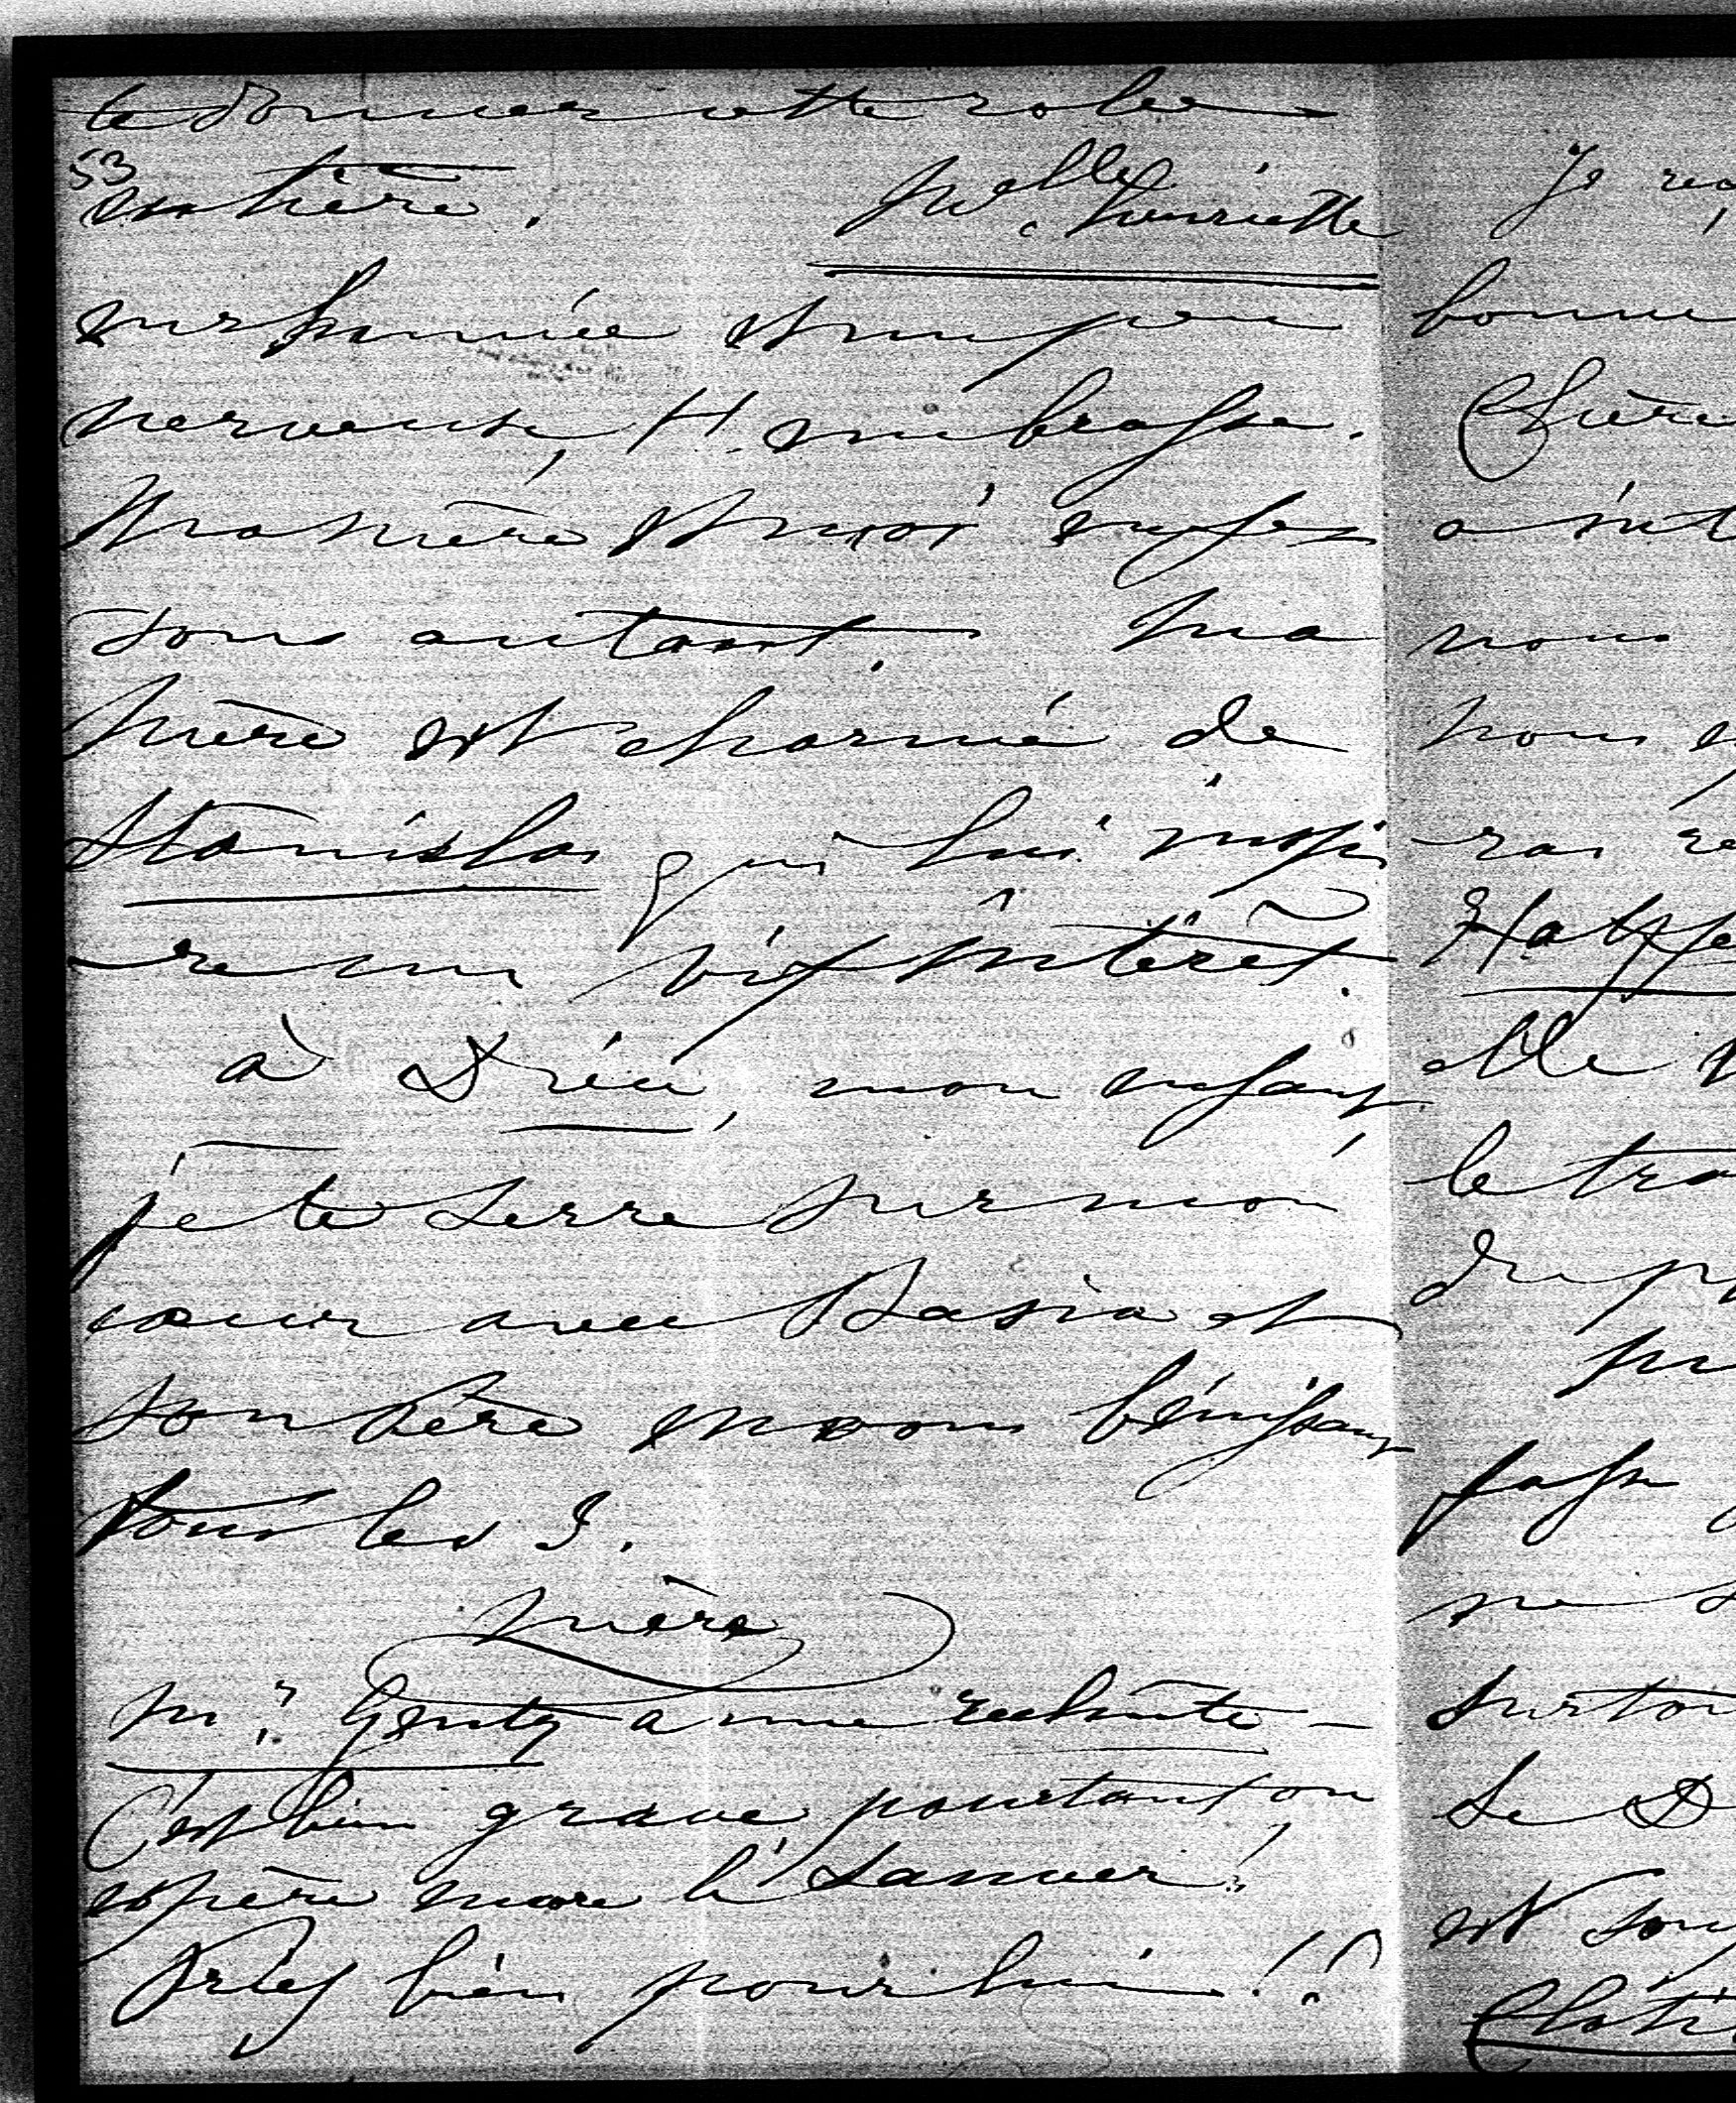 te donner cette robe
53
entière. M.elle Henriette
enrhumée et un peu
nerveuse, t'embrasse.
Ma mère et moi en fes
sons autant. Ma
mère est charmée de
Stanislas qui lui inspi
re un vif intérêt.
à Dieu, mon enfant,
je te serre sur mon
cœur avec Basia et
son Père en vous bénissant
tous les 3.
mère
Mr Gentz a une rechute –
C'est bien grave pourtant on
espère encore le sauver!
Priez bien pour lui!!
Je
bonne
Chère
a
nous
nous
elle
le
du
surtou
Le
est